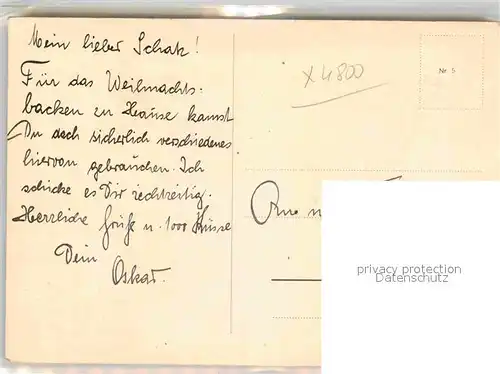 Mein lieber Schatz!
Für das Weihnachts-
backen zu Hause kannst
Du doch sicherlich verschiedenes
hiervon gebrauchen. Ich
schicke es Dir rechtzeitig.
Herzliche Grüße u. 1000 Küsse
Dein
Oskar.
x 4800
Nr. 5
privacy protection
Datenschutz